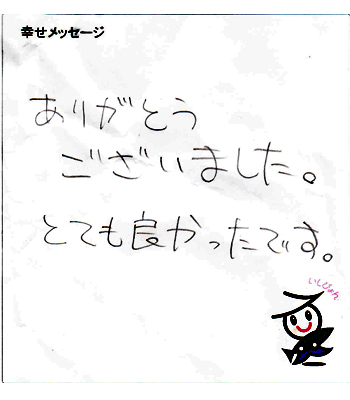 幸せメッセージ
ありがとう
ございました。
とても良かったです。
いしぴょん